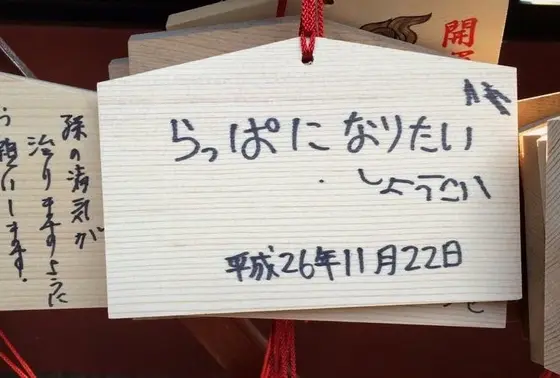 らっぱになりたい
平成26年11月22日
孫の病気が
治りますように
願いします。
開